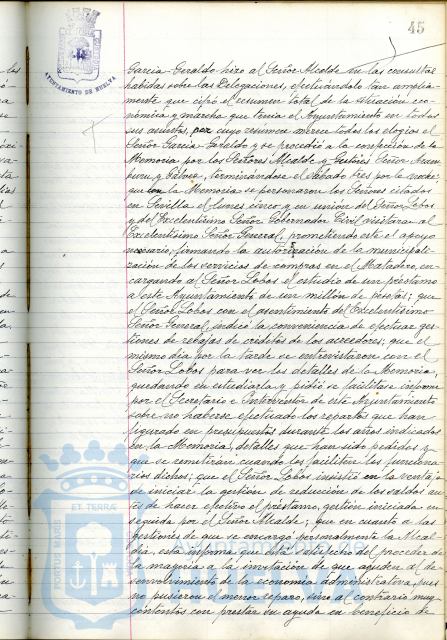 45
AYUNTAMIENTO DE HUELVA
García-Geraldo hizo al Señor Alcalde en las consultas
habidas sobre las Delegaciones, efectuándolo tan amplia-
mente que cifró el resumen total de la situación eco-
nómica y marcha que tenía el Ayuntamiento en todos
sus asuntos, por cuyo resumen merece todos los elogios el
Señor García Geraldo y se procedió a la confección de la
Memoria por los Señores Alcalde y Gestores Señor
y terminándose el Sábado tres por la noche
que con la Memoria se personaron los Señores citados
en Sevilla el lunes cinco y en unión del Señor Lobos
y del Excelentísimo Señor Gobernador Civil visitaron al
Excelentísimo Señor General, prometiendo este el apoyo
necesario, firmando la autorización de la municipali-
zación de los servicios de compras en el Matadero, en-
cargando al Señor Lobos el estudio de un préstamo
a este Ayuntamiento de un millón de pesetas; que
el Señor Lobos con el asentimiento del Excelentísimo
Señor General, indicó la conveniencia de efectuar ges-
tiones de rebajas de créditos de los acreedores; que el
mismo día por la tarde se entrevistaron con el
Señor Lobos para ver los detalles de la Memoria,
quedando en estudiarla y pidió se facilitase informe
por el Secretario e Interventor de este Ayuntamiento
sobre no haberse efectuado los repartos que han
figurado en presupuestos durante los años indicados
en la Memoria, detalles que han sido pedidos y
que se remitirán cuando los faciliten los funciona-
rios dichos; que el Señor Lobos insistió en la ventaja
de iniciar la gestión de reducción de los saldos an-
tes de hacer efectivo el préstamo, gestión iniciada en
seguida por el Señor Alcalde; que en cuanto a las
gestiones de que se encargó personalmente la Alcal-
día, esta informa que está satisfecho del proceder de
la mayoría a la invitación de que ayuden al de-
senvolvimiento de la economía administrativa, pues
no pusieron el menor reparo, sino al contrario muy
contentos con prestar su ayuda en beneficio de
PORTUS MARIS ET TERRÆ